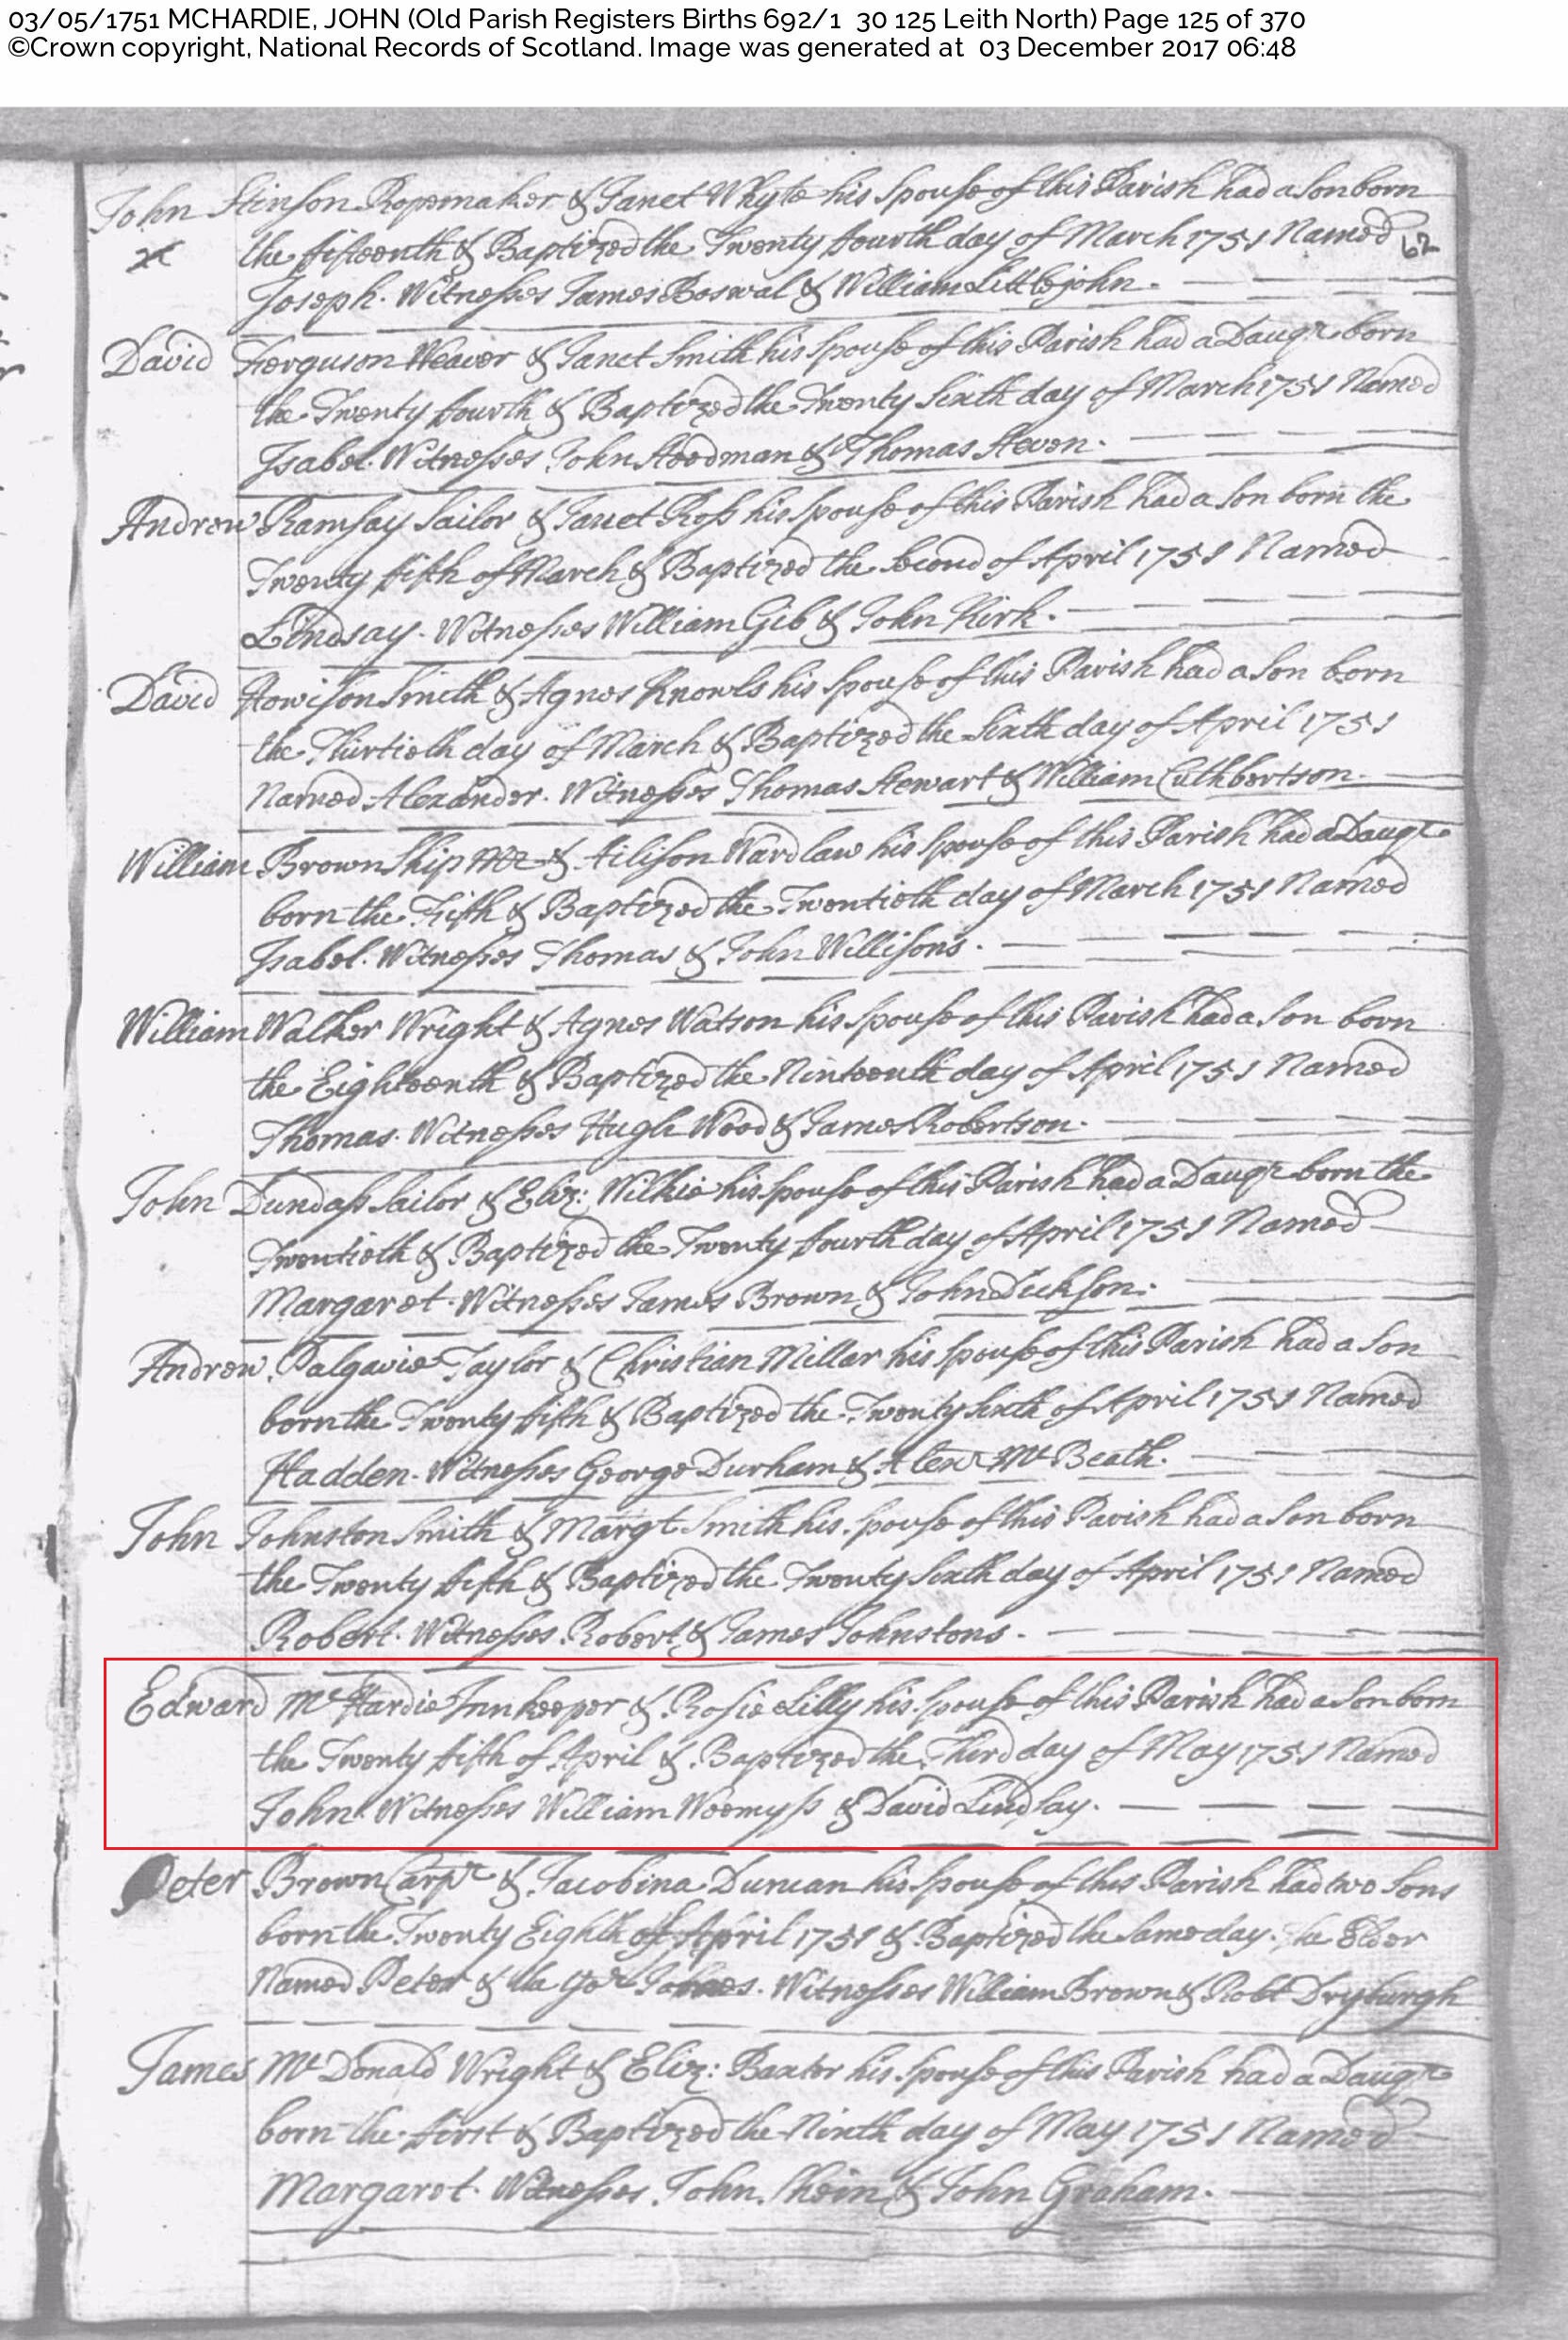 03/05/1751 MCHARDIE, JOHN (Old Parish Registers Births 692/1 30 125 Leith North) Page 125 of 370
©Crown copyright, National Records of Scotland. Image was generated at 03 December 2017 06:48
John Stinson Ropemaker & Janet Whyte his Spouse of this Parish had a Son born
x the fifteenth & Baptized the Twenty fourth day of March 1751 Named 62
Joseph. Witnesses James Boswal & William Littlejohn.
David Ferguson Weaver & Janet Smith his Spouse of this Parish had a Daugr born
the Twenty fourth & Baptized the Twenty Sixth day of March 1751 Named
Isabel. Witnesses John Stodman & Thomas Steven.
Andrew Ramsay Sailor & Janet Ross his Spouse of this Parish had a Son born the
Twenty fifth of March & Baptized the Second of April 1751 Named
Lindsay. Witnesses William Gib & John Kirk.
David Howison Smith & Agnes Knowls his Spouse of this Parish had a Son born
the Thirtieth day of March & Baptized the Sixth day of April 1751
Named Alexander. Witnesses Thomas Stewart & William Cuthbertson.
William Brown Ship Mr & Ailison Wardlaw his Spouse of this Parish had a Daugr
born the Fifth & Baptized the Twentieth day of March 1751 Named
Isabel. Witnesses Thomas & John Willisons.
William Walker Wright & Agnes Watson his Spouse of this Parish had a Son born
the Eighteenth & Baptized the Ninteenth day of April 1751 Named
Thomas. Witnesses Hugh Wood & James Robertson.
John Dundass Sailor & Eliz: Wilkie his Spouse of this Parish had a Daugr born the
Twentieth & Baptized the Twenty fourth day of April 1751 Named
Margaret. Witnesses James Brown & John Dickson.
Andrew Palgavie Taylor & Christian Millar his Spouse of this Parish had a Son
born the Twenty fifth & Baptized the Twenty Sixth of April 1751 Named
Hadden. Witnesses George Durham & Alexr Mc Beath.
John Johnston Smith & Margt Smith his Spouse of this Parish had a Son born
the Twenty fifth & Baptized the Twenty Sixth day of April 1751 Named
Robert. Witnesses Robert & James Johnstons.
Edward Mc Hardie Innkeeper & Rosie Lilly his Spouse of this Parish had a Son born
the Twenty fifth of April & Baptized the Third day of May 1751 Named
John. Witnesses William Weemyss & David Lindsay.
Peter Brown Carpr & Jacobina Duncan his Spouse of this Parish had two Sons
born the Twenty Eighth of April 1751 & Baptized the Same day. The Elder
Named Peter & the yor James. Witnesses William Brown & Robt Dryburgh
James Mc Donald Wright & Eliz: Baxter his Spouse of this Parish had a Daugr
born the first & Baptized the Ninth day of May 1751 Named
Margaret. Witnesses John & John Graham.